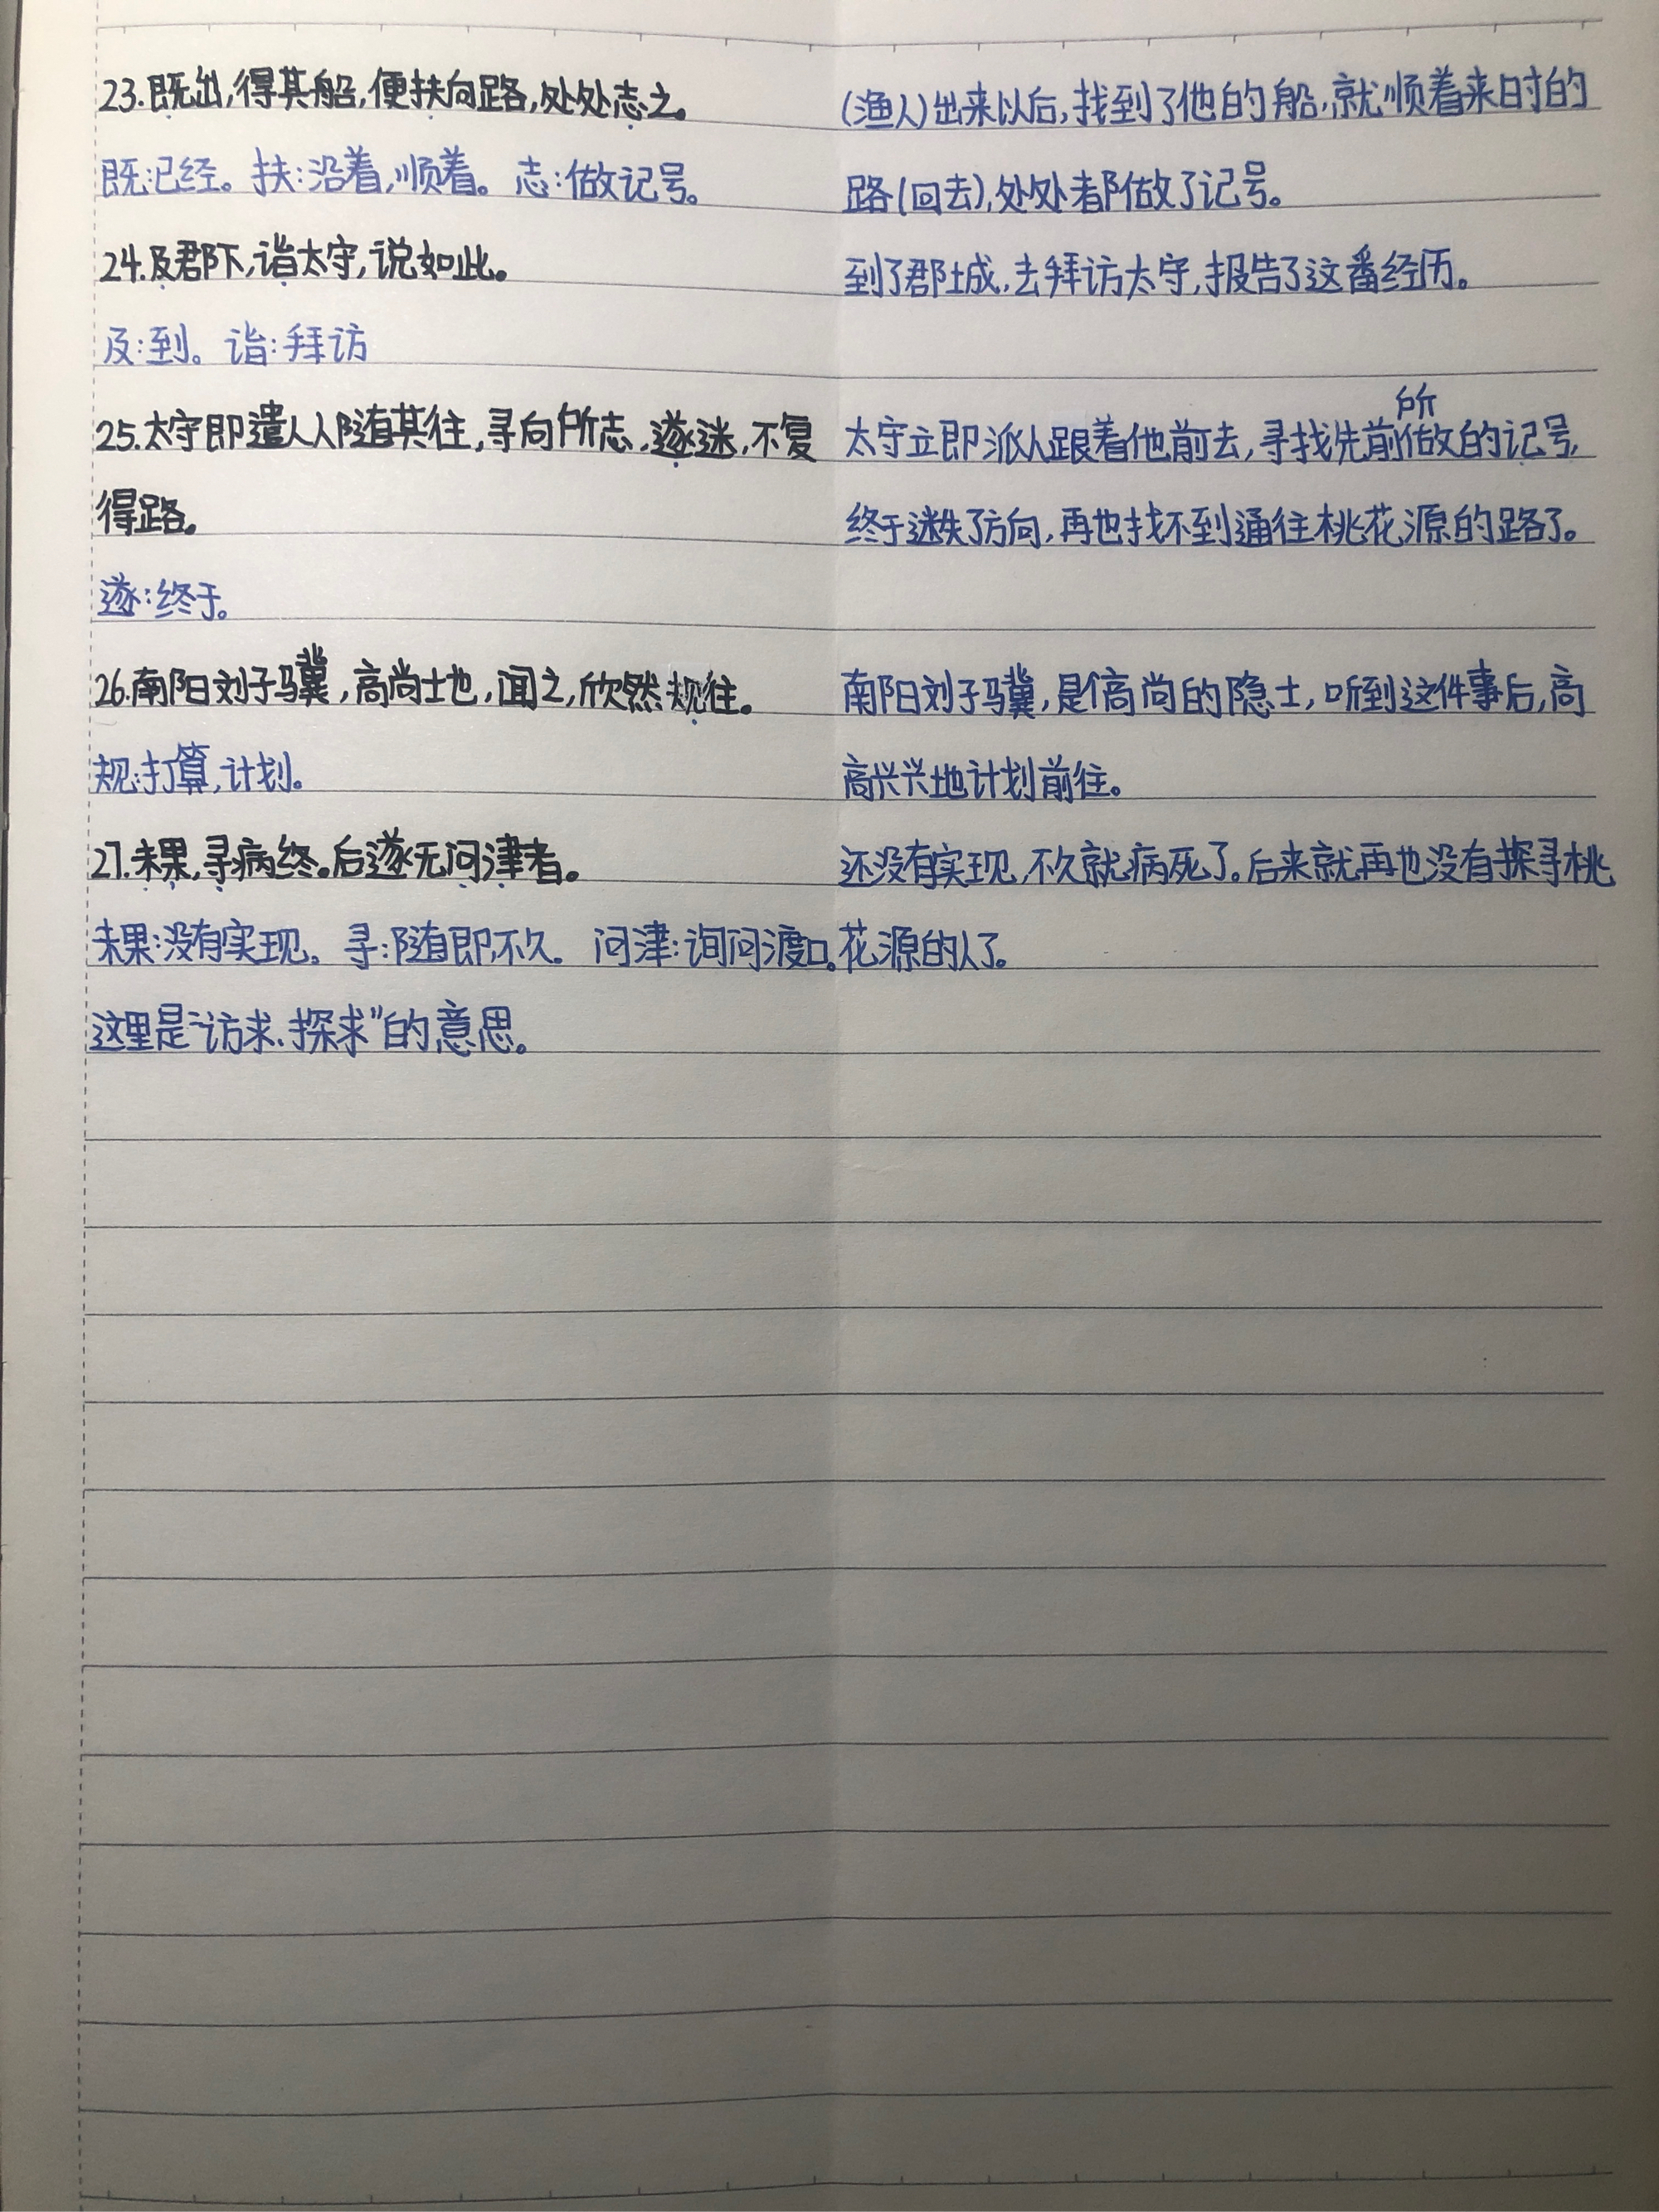 23.既出,得其船,便扶向路,处处志之。
既:已经。扶:沿着,顺着。志:做记号。
24.及郡下,诣太守,说如此。
及:到。诣:拜访
25.太守即遣人随其往,寻向所志,遂迷,不复
得路。
遂:终于。
26.南阳刘子骥,高尚士也,闻之,欣然规往。
规:打算,计划。
27.未果,寻病终。后遂无问津者。
未果:没有实现。寻:随即,不久。问津:询问渡口。
这里是“访求、探求”的意思。
(渔人)出来以后,找到了他的船,就顺着来时的
路(回去),处处都做了记号。
到了郡城,去拜访太守,报告了这番经历。
太守立即派人跟着他前去,寻找先前所做的记号,
终于迷失了方向,再也找不到通往桃花源的路了。
南阳刘子骥,是个高尚的隐士,听到这件事后,高
高兴兴地计划前往。
还没有实现,不久就病死了。后来就再也没有探寻桃
花源的人了。